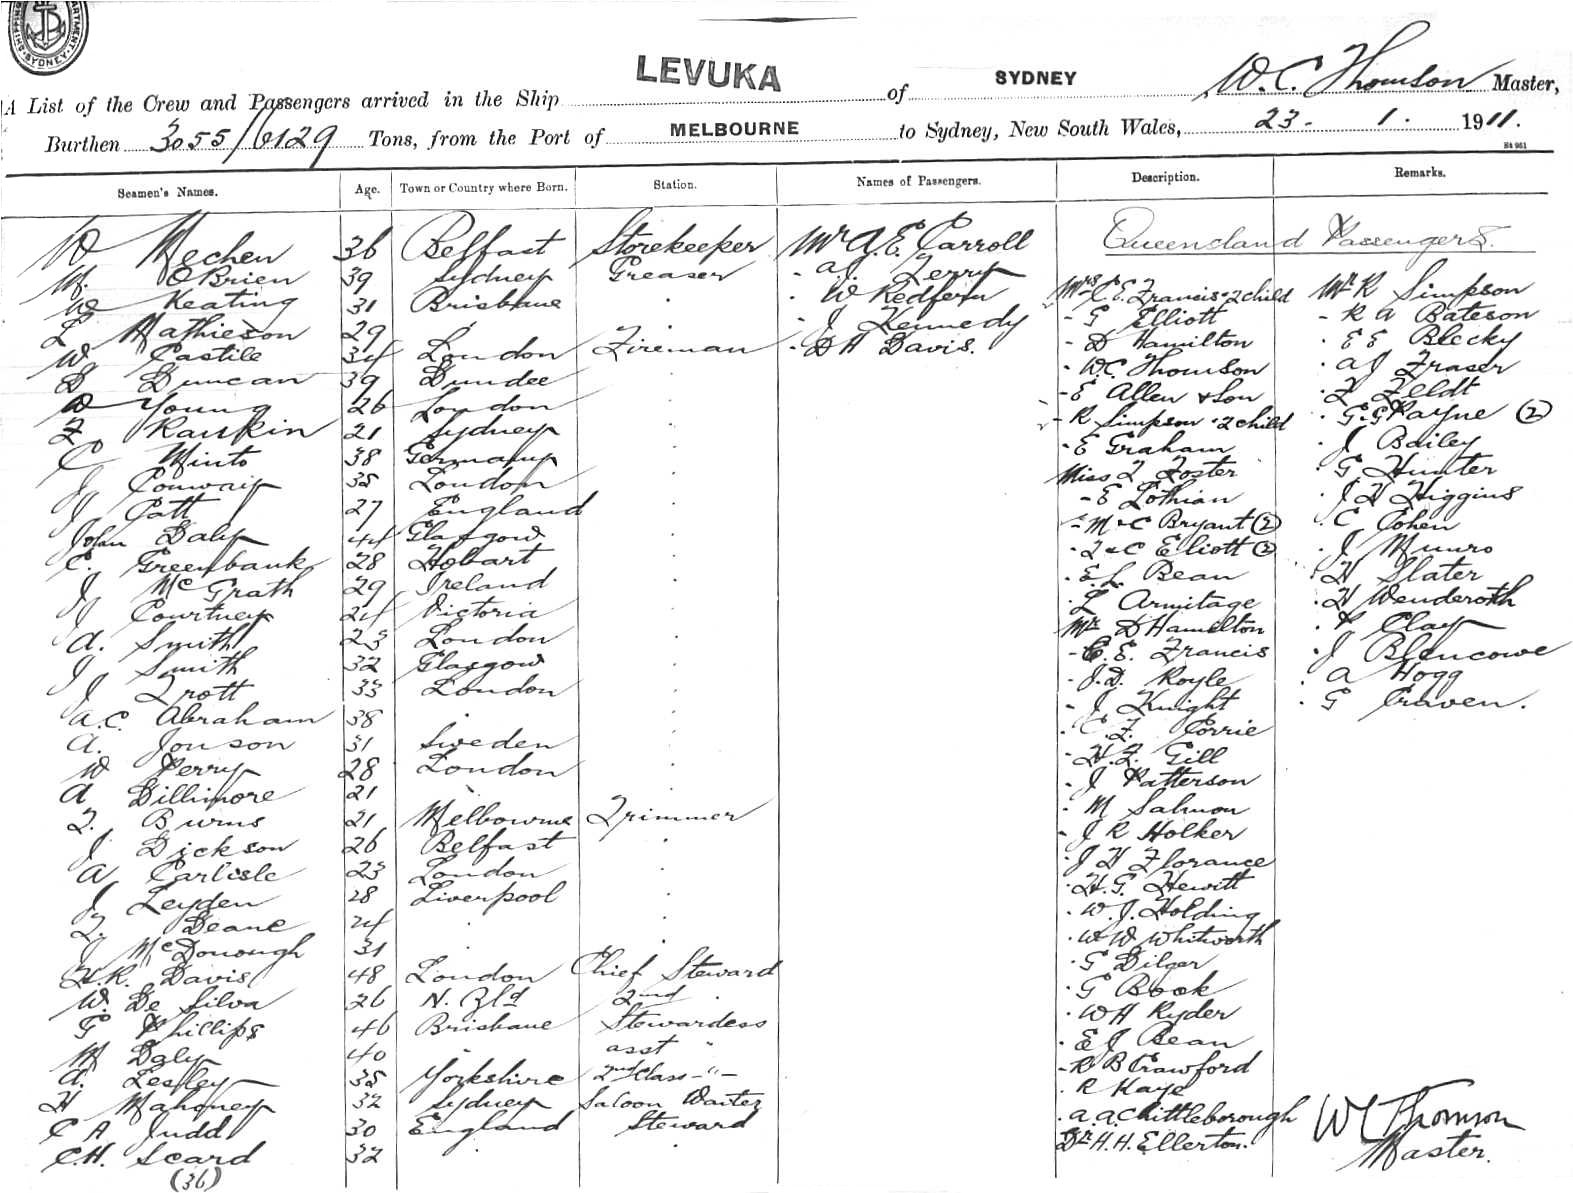 SHIPPING DEPARTMENT SYDNEY
LEVUKA
A List of the Crew and Passengers arrived in the Ship LEVUKA of SYDNEY W. C. Thomson Master,
Burthen 3055/6129 Tons, from the Port of MELBOURNE to Sydney, New South Wales, 23 - 1. 1911.
Seamen's Names. Age. Town or Country where Born. Station. Names of Passengers. Description. Remarks.
W Mechen 36 Belfast Storekeeper
M. O'Brien 39 Sydney Greaser
W Keating 31 Brisbane .
L Mathieson 29
W Castile 34 London Fireman
D Duncan 39 Dundee
A Young 26 London
F Rauskin 21 Sydney
C Minto 38 Germany
J Conway 35 London
J Catt 27 England
John Daly 44 Glasgow
C. Greenbank 28 Hobart
J McGrath 29 Ireland
J Courtney 24 Victoria
A. Smith 23 London
J Smith 32 Glasgow
J Trott 33 London
A.C. Abraham 38 .
A. Jonson 31 Sweden
W Perry 28 London
A Dillimore 21 .
T. Burns 21 Melbourne Trimmer
J Dickson 26 Belfast
A Carlisle 23 London
J Leyden 28 Liverpool
T. Deane 24 .
J McDonough 31 .
H.R. Davis 48 London Chief Steward
W. De Silva 26 N. Zld 2nd .
G Phillips 46 Brisbane Stewardess
M Daly 40 asst "
A. Lesley 35 Yorkshire 2nd Class -"-
H Mahoney 32 Sydney Saloon Waiter
C A Judd 30 England Steward
C.H. Scard 32
(36)
Mr A.E. Carroll
- A.J. Terry
. W Redfern
. J Kennedy
- D H Davis.
Queensland Passengers.
Mrs C E. Francis - 2 child
- G Elliott
- D Hamilton
- W.C. Thomson
- E Allen & Son
- R Simpson - 2 child
- E Graham
Miss F Foster
- E Lothian
- M & C Bryant (2)
. F & C Elliott (2)
. E L Bean
. L Armitage
Mr D Hamilton
- C. E. Francis
. J.D. Royle
- J Knight
. C. F. Corrie
- H.F. Gill
- J Patterson
- M Salmon
- J R Holker
. J H Florance
. H.G. Hewitt
. W.J. Holding
. W W Whitworth
. G Dilger
. G Book
. W H Ryder
. E J Bean
- R B Crawford
. R Kaye
. A.A. Chittleborough
Dr H.H. Ellerton.
Mr R Simpson
- R A Bateson
. E E Blecky
. A J Fraser
. F Feldt
. G.G Payne (2)
. J Bailey
. G Hunter
. J H Higgins
. C Cohen
. J Munro
. H Slater
. H Wenderoth
. P Clay
. J Blencowe
. A Hogg
. G Craven.
W C Thomson
Master.